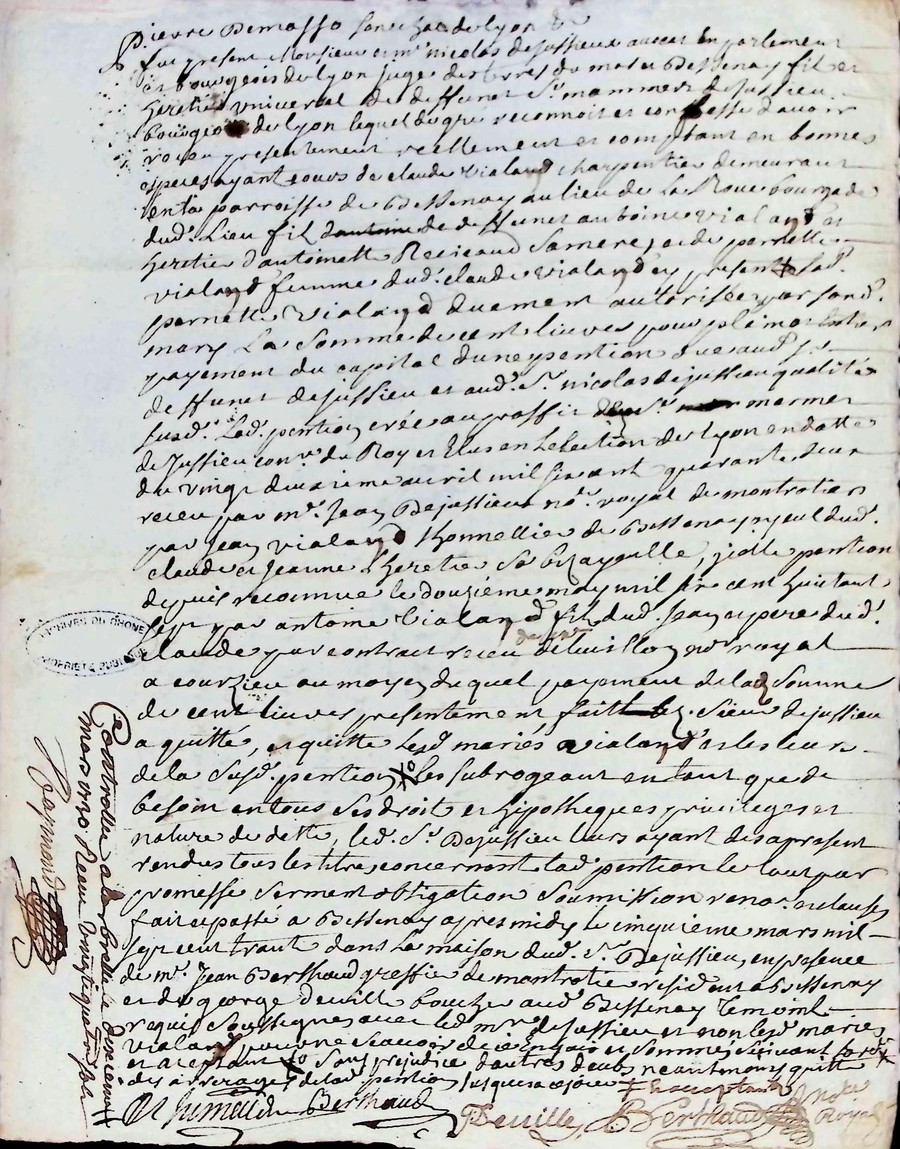 Pierre Demasso senechal de lyon &
fut present Monsieur et me nicolas dejussieux avocat en parlement
et bourgeois de lyon juge des terres du mas et Bessenay fil et
heretié universal de deffunct Sr mammert dejussieu
bourgeois de lyon lequel de gre reconnoit et confesse d'avoir
receu presentement reellement et comptant en bonnes
especes ayant cours de claude vialand charpentié demeurant
en la parroisse de Bessenay au lieu de La Roue bourg de
dud. Lieu fil de deffunct antoine vialand et
heretié d'antoinette Reric aud Sa mere, et de pernette
vialand femme dud. claude vialand cy presente lad.
pernette vialand duement autorisée par sond.
mary La Somme de cent livres pour plé mat entier
payement du capital d'une pention due aud.
deffunct dejussieu et aud. Sr nicolas dejussieu qualité
susd. Lad. pention créé au proffit de Sr mammer
de Jussieu conr. du Roy et Elus en Lelection de Lyon en datte
du vingt deuxieme avril mil six cent quarante deux
receu par me. Jean Dejussieux nore. royal de montrotier
par Jean vialand thonnellier de Bessenay ayeul dud.
claude et Jeanne L'heretié Sa bizayeulle, jcelle pention
depuis reconnue le douzième may mil six cent huictant
sept par antoine vialand fil dud. Jean et pere dud.
claude par contrat receu deluisllon nore royal
a courzieu au moyen duquel payement de lad. Somme
de cent livres presentement faitt led. Sieur dejussieu
a quitté, et quitte Lesd. mariés vialand et les leurs
de la Susd. pention Les subrogeant en tant que de
besoin en tous Ses droit et hipotheques privileges et
nature de dette, led. Sr. Dejussieu leurs ayant des apresent
rendus tous les titres concernant lad. pention le tout par
promesse serment obligation soumission renon. et clauses
fait et passé a Bessenay apres midy le cinquième mars mil
sept cent trante dans La maison dud. Sr. Dejussieu, en presence
de me. Jean Berthaud greffié de montrotié residant a Bessenay
et de george deville boucher aud. Bessenay Temoins
requis soussignes avec led. mr. dejussieu et non lesd. mariés
vialand pour ne scavoir de ce Enquis et sommés suivant
et acceptant Sans prejudice d'autres deub neantmoins quitte
des arrerages de lad. pention jusques a ce jour
Berthaud
Deville
Berthaud no.re Royal
Controllé a la brelle le dixe
mars 1730 Receu vingt quatre sols
Raymond
ARCHIVES DU RHONE
PROPRIETE PUBLIQUE